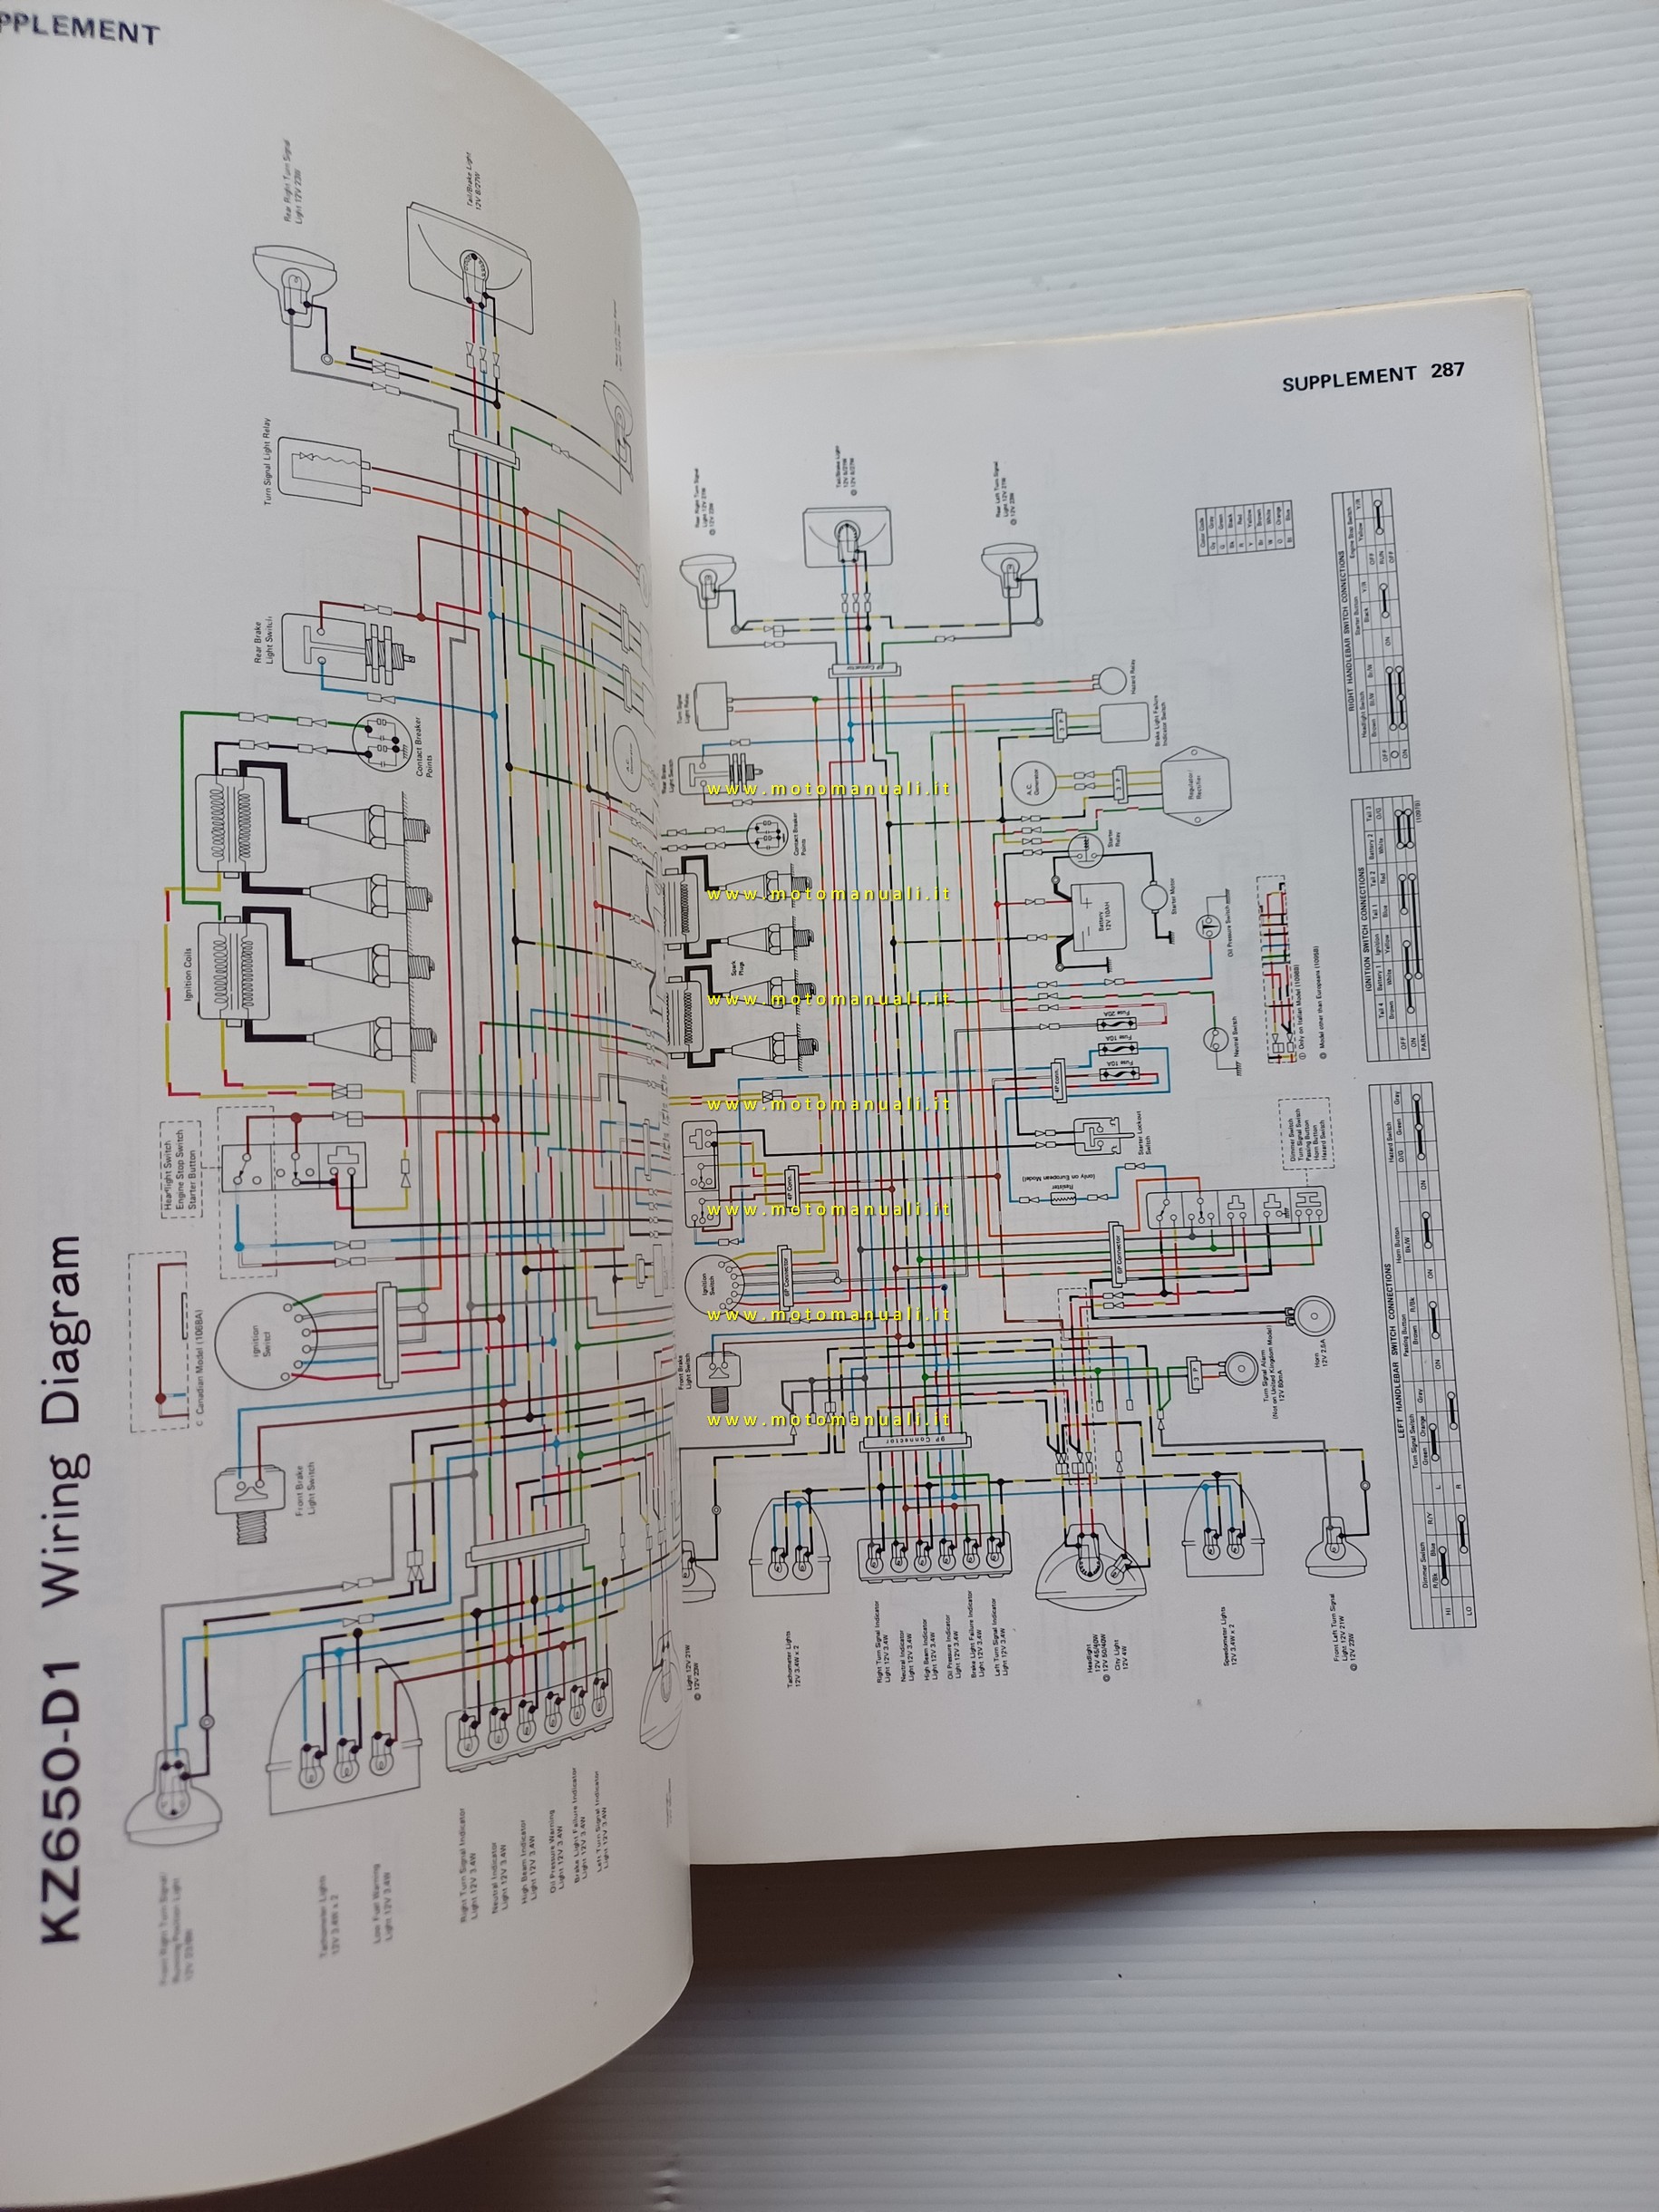 PPLEMENT
KZ650-D1 Wiring Diagram
Rear Right Turn Signal
Light 12V 23W
Tail/Brake Light
12V 8/27W
Turn Signal Light Relay
Rear Brake
Light Switch
Contact Breaker
Points
Ignition Coils
Headlight Switch
Engine Stop Switch
Starter Button
Canadian Model (106BA)
Ignition
Switch
Front Brake
Light Switch
Front Right Turn Signal/
Running Position Light
12V 23/8W
Tachometer Lights
12V 3.4W x 2
Low Fuel Warning
Light 12V 3.4W
Right Turn Signal Indicator
Light 12V 3.4W
Neutral Indicator
Light 12V 3.4W
High Beam Indicator
Light 12V 3.4W
Oil Pressure Warning
Light 12V 3.4W
Brake Light Failure Indicator
Light 12V 3.4W
Left Turn Signal Indicator
Light 12V 3.4W
A.C.
SUPPLEMENT 287
Rear Right Turn Signal
Light 12V 21W
12V 23W
Tail/Brake Light
12V 5/21W
12V 8/27W
Rear Left Turn Signal
Light 12V 21W
12V 23W
9P Connector
Turn Signal
Light Relay
Hazard Relay
Rear Brake
Light Switch
3 P
Brake Light Failure
Indicator Switch
A.C.
Generator
3 P
Regulator/
Rectifier
Contact Breaker
Points
Starter
Relay
Battery
12V 10AH
Starter Motor
Spark
Plugs
Oil Pressure Switch
Neutral Switch
Fuse 20A
Fuse 10A
Fuse 10A
4P conn.
Only on Italian Model (109BD)
Model other than Europeans (109SB)
Starter Lockout
Switch
Resistor
(only on European Model)
Dimmer Switch
Turn Signal Switch
Passing Button
Horn Button
Hazard Switch
4P Conn.
Ignition
Switch
6P Connector
6P Connector
Front Brake
Light Switch
Horn
12V 2.5A
Turn Signal Alarm
(Not on United Kingdom Model)
12V 80mA
3 P
9P Connector
Light 12V 21W
12V 23W
Tachometer Lights
12V 3.4W x 2
Right Turn Signal Indicator
Light 12V 3.4W
Neutral Indicator
Light 12V 3.4W
High Beam Indicator
Light 12V 3.4W
Oil Pressure Indicator
Light 12V 3.4W
Brake Light Failure Indicator
Light 12V 3.4W
Left Turn Signal Indicator
Light 12V 3.4W
Headlight
12V 45/40W
12V 50/40W
City Light
12V 4W
Speedometer Lights
12V 3.4W x 2
Front Left Turn Signal
Light 12V 21W
12V 23W
Color Code
Gy Gray
G Green
Bk Black
R Red
Y Yellow
Br Brown
W White
O Orange
Bl Blue
RIGHT HANDLEBAR SWITCH CONNECTIONS
Headlight Switch Starter Button Engine Stop Switch
IGNITION SWITCH CONNECTIONS
Tail 4 Battery 1 Ignition Tail 1 Tail 2 Battery 2 Tail 3
Brown White Yellow Blue Red White O/G
OFF
ON
PARK
(109TB)
LEFT HANDLEBAR SWITCH CONNECTIONS
Dimmer Switch Turn Signal Switch Passing Button Horn Button Hazard Switch
R/Bk Blue R/Y Green Orange Gray Brown R/Bk Bk/W O/G Green Gray
HI L ON ON ON
LO R
www.motomanuali.it
www.motomanuali.it
www.motomanuali.it
www.motomanuali.it
www.motomanuali.it
www.motomanuali.it
www.motomanuali.it